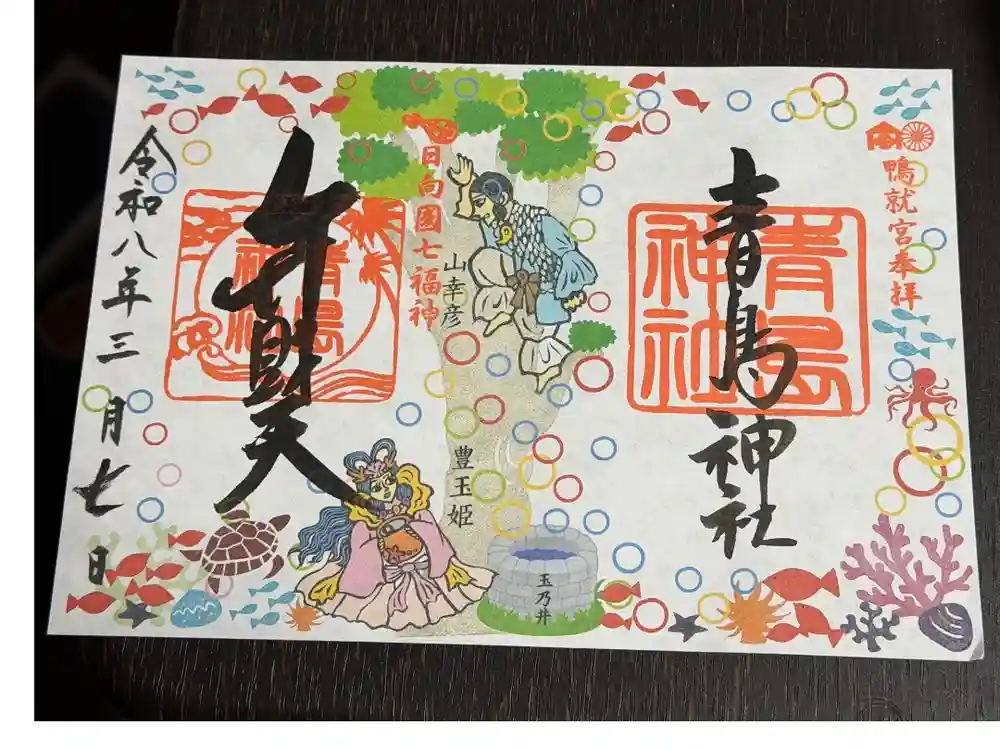 鴨就宮奉拝
青島神社
青島神社
日向國七福神
山幸彦
豊玉姫
玉乃井
弁財天
青島神社
令和八年三月七日